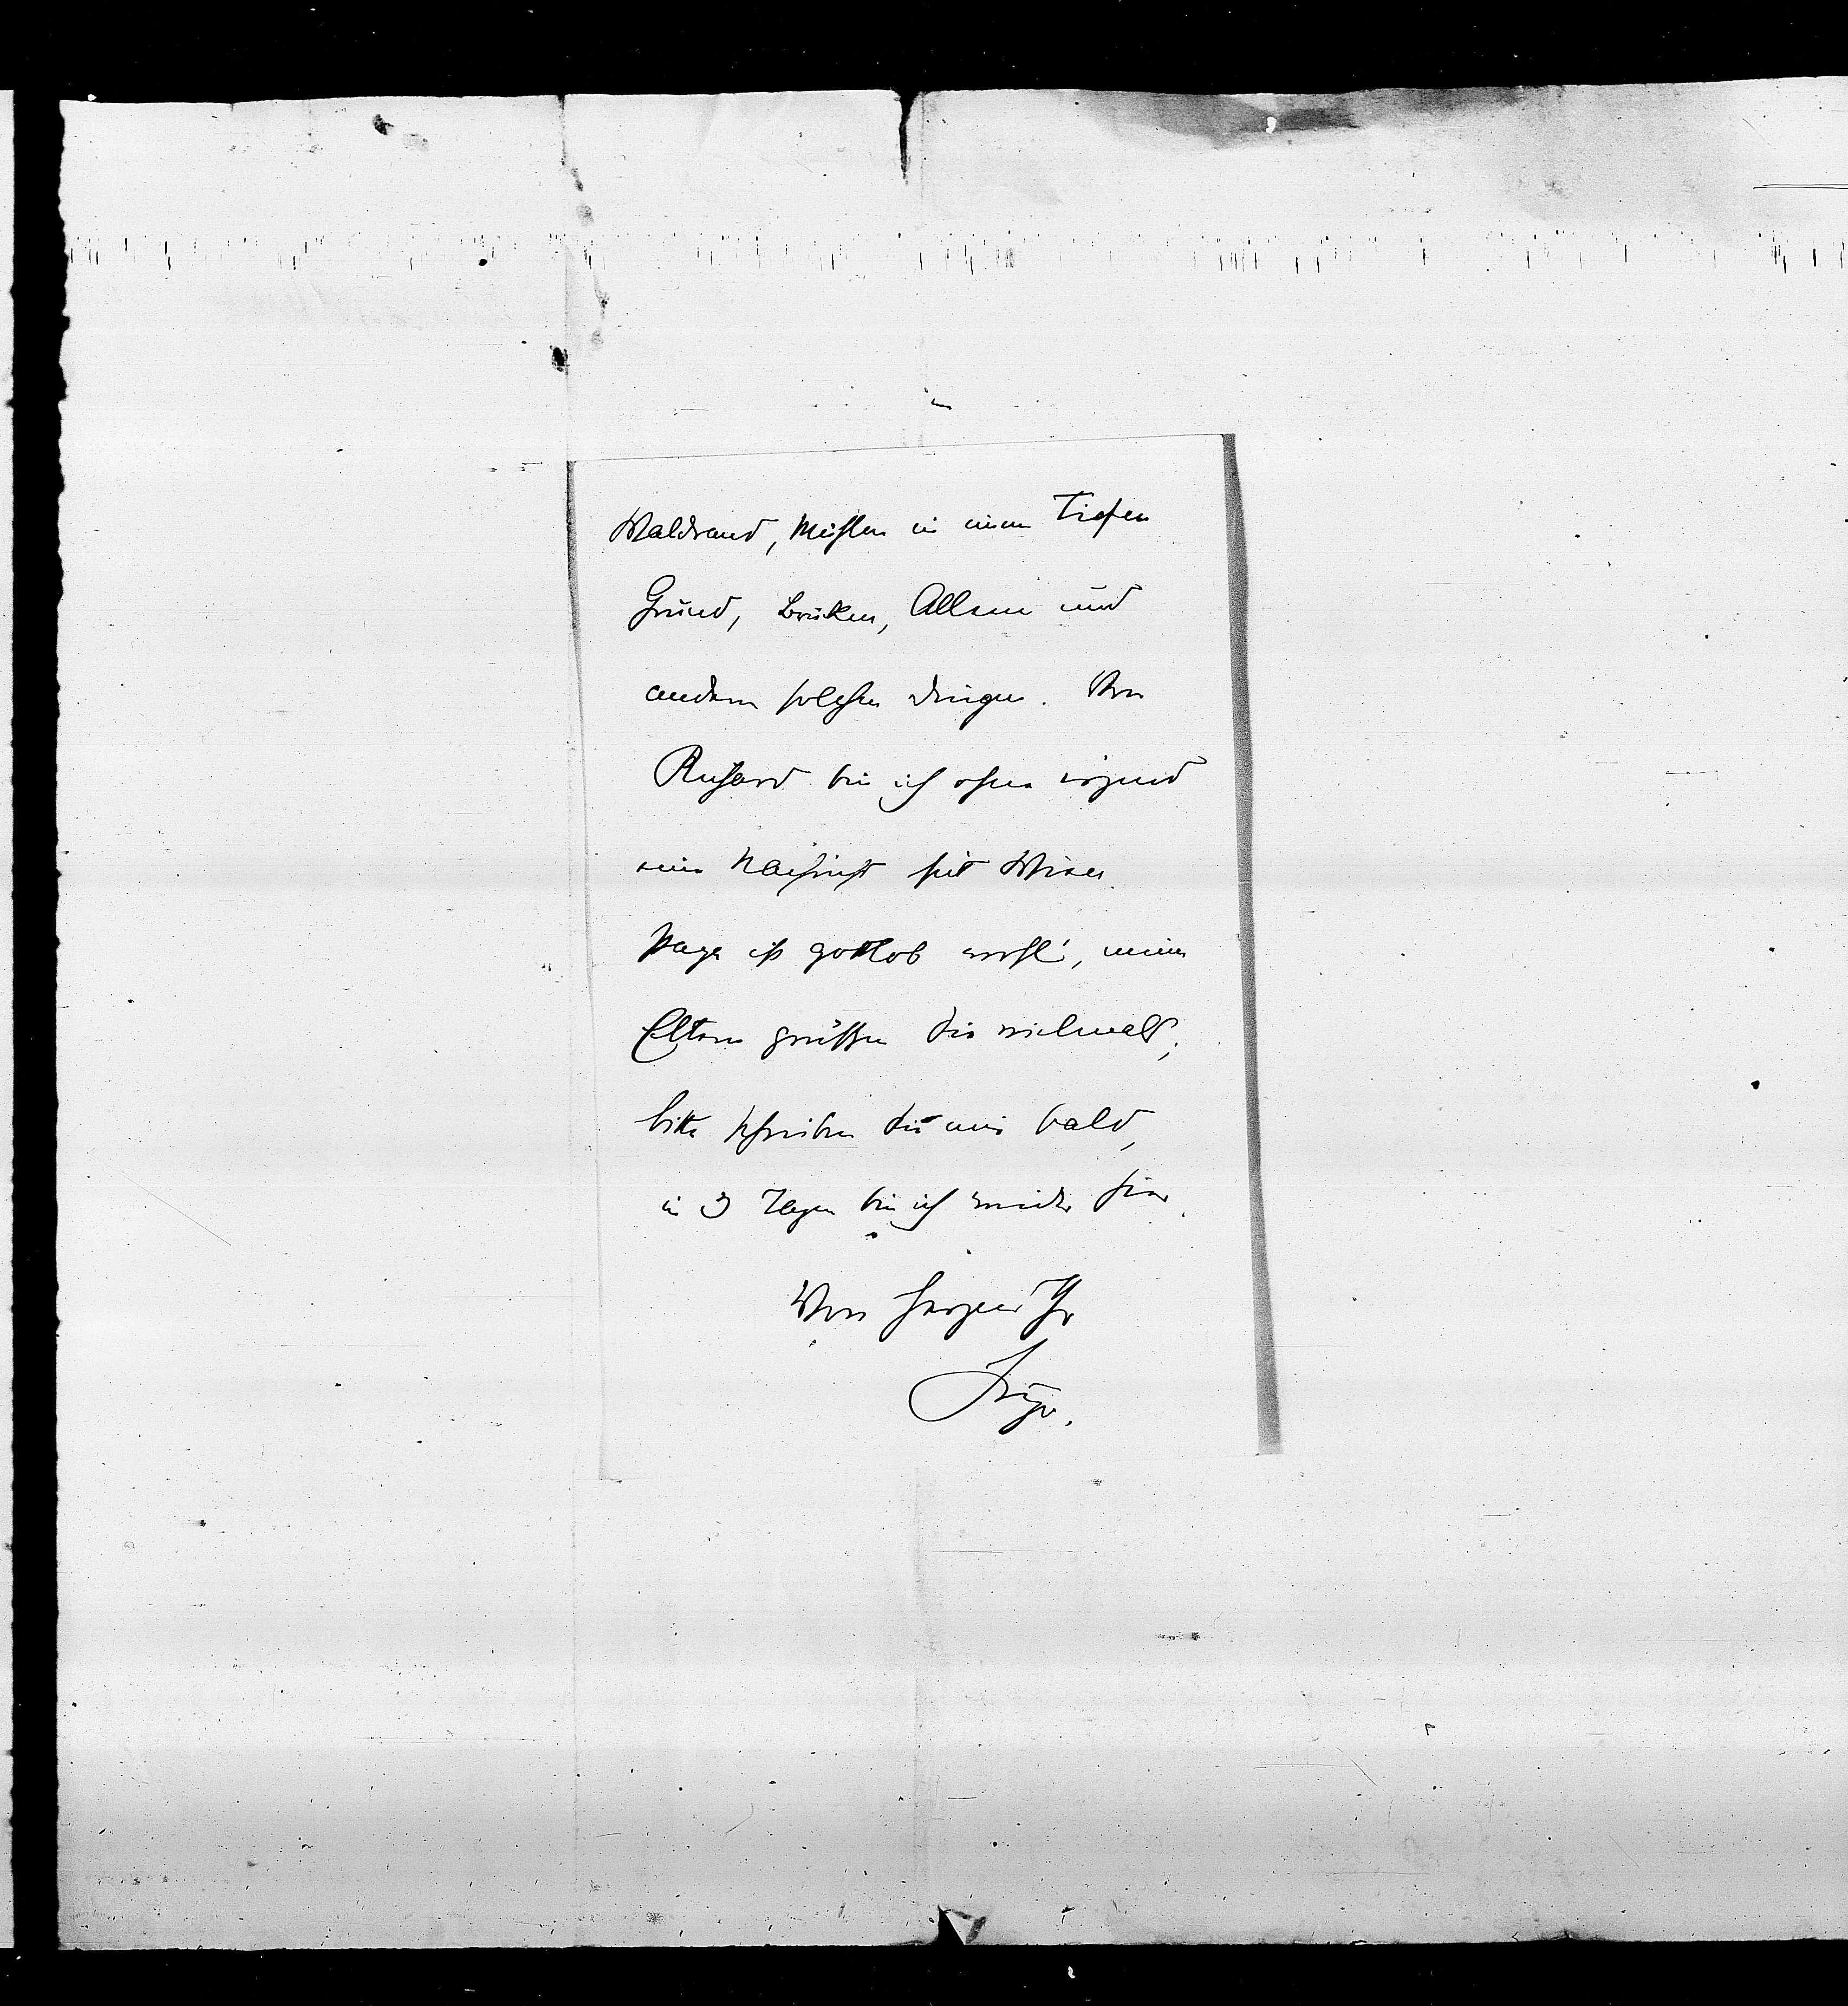 Waldrand, Mühlen in einem Tiefen
Grund, Brüken, Alleen und
andern solchen Dingen. Von
Richard bin ich ohne irgend
eine Nachricht seit Wien.
ist gottlob wohl, meine
Eltern grüßen Sie vielmals;
bitte schreiben Sie mir bald,
in 3 Tagen bin ich wieder hier.
Von Herzen Ihr
Hugo.